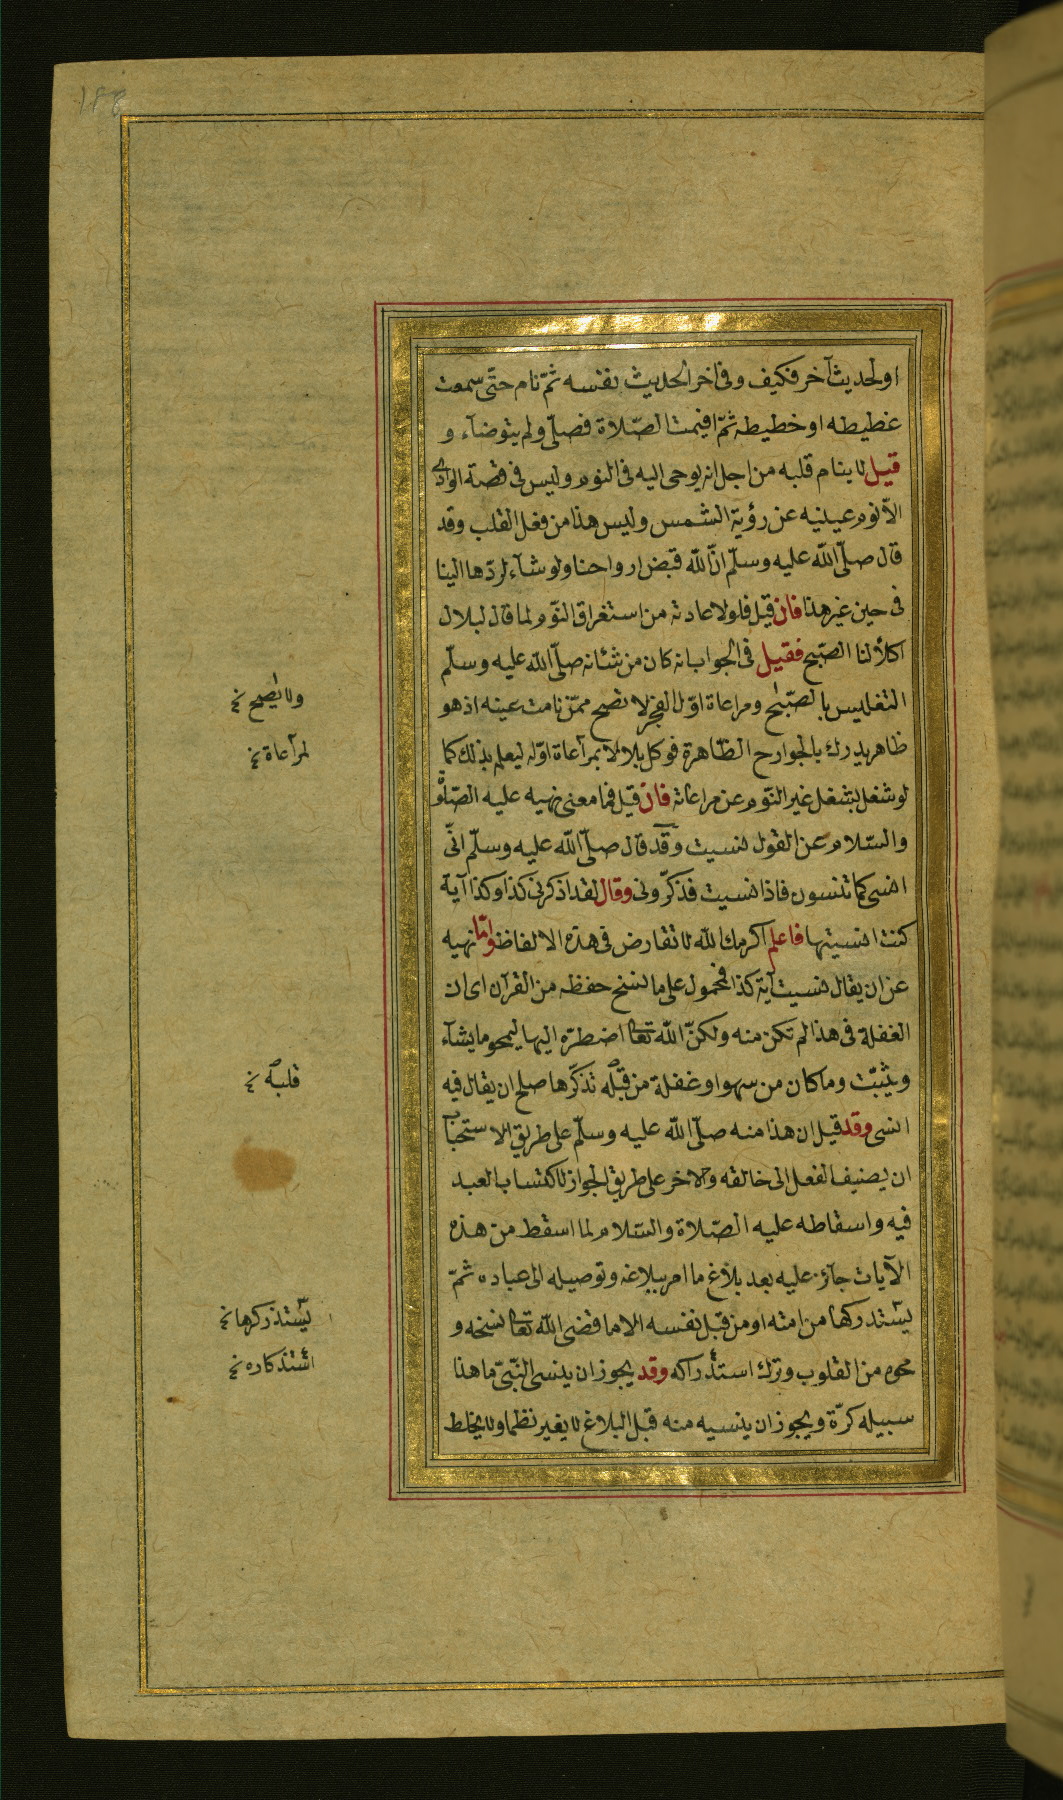 اولحديث آخر فكيف وفى اخر الحديث نفسه ثمّ نام حتّى سمعت
غطيطه او خطيطه ثمّ اقيمت الصّلاة فصلّى ولم يتوضآء و
قيل لا ينام قلبه من اجل انه يوحى اليه فى النوم وليس فى قصة الوادى
الّا نوم عينيه عن رؤية الشمس وليس هذا من فعل القلب وقد
قال صلّى الله عليه وسلّم انّ الله قبض ارواحنا ولو شآء لردّها الينا
فى حين غير هذا فان قيل فلولا عادته من استغراق النّوم لما قال لبلال
اكلأ لنا الصّبح فقيل فى الجواب انه كان من شئانه صلّى الله عليه وسلّم
التغليس بالصّبح ومراعاة اوّل الفجر لا تصح ممّن نامت عينه اذ هو
ظاهر يدرك بالجوارح الظّاهرة فوكل بلالا بمراعاة اوّله ليعلم بذلك كما
لو شغل بشغل غير النّوم عن مراعاته فان قيل فما معنى نهيه عليه الصّلوة
والسّلام عن القول نسيت وقد قال صلّى الله عليه وسلّم انّى
انسى كما تنسون فاذا نسيت فذكّرونى وقال لقد اذكرنى كذا وكذا آية
كنت انسيتها فاعلم اكرمك الله لا تعارض فى هذه الالفاظ وامّا نهيه
عن ان يقال نسيت آية كذا فمحمول على ما نسخ حفظه من القرآن اى ان
الغفلة فى هذا لم تكن منه ولكنّ الله تعالى اضطرّه اليها ليمحو ما يشآء
ويثبت وما كان من سهو او غفلة من قبله تذكّرها صلح ان يقال فيه
انسى وقد قيل ان هذا منه صلّى الله عليه وسلّم على طريق الاستحباب
ان يضيف الفعل الى خالقه والاخر على طريق الجواز لاكتساب العبد
فيه واسقاطه عليه الصّلاة والسّلام لما اسقط من هذه
الآيات جآئز عليه بعد بلاغ ما امر ببلاغه وتوصيله الى عباده ثمّ
يستدركها من امته او من قبل نفسه الا ما قضى الله تعالى نسخه و
محوه من القلوب وترك استدراكه وقد يجوز ان ينسى النّبىّ ما هذا
سبيله كرّة ويجوز ان ينسيه منه قبل البلاغ لا يغير نظما ولا يخلط
ولا يصح خ
لمرآعاة خ
قلبه خ
يستذكرها خ
استذكاره خ